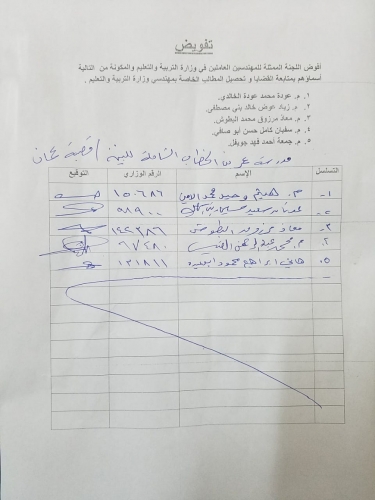 تفويض
أفوض اللجنة الممثلة للمهندسين العاملين في وزارة التربية والتعليم والمكونة من التالية
أسماؤهم بمتابعة القضايا و تحصيل المطالب الخاصة بمهندسي وزارة التربية والتعليم .
١. م. عودة محمد عودة الخالدي.
٢. م. زياد عوض خالد بني مصطفى.
٣. م. معاذ مرزوق محمد البطوش.
٤. م. سفيان كامل حسن أبو صافي.
٥. م. جمعة أحمد فهد جويفل.
مدرسة عمر بن الخطاب الثانوية للبنين / قصبة عمان
التسلسل الإسم الرقم الوزاري التوقيع
١- م. هيثم وحيد محمد ١٥٠٦٨٦
٢- سعيد ٩٨٩٠٠
٣- معاذ مرزوق البطوش ١٤٢٣٨٦
٤- م. محمد ٦٧٢٨٠
٥- هاني ابراهيم محمود ١٣١٨١١